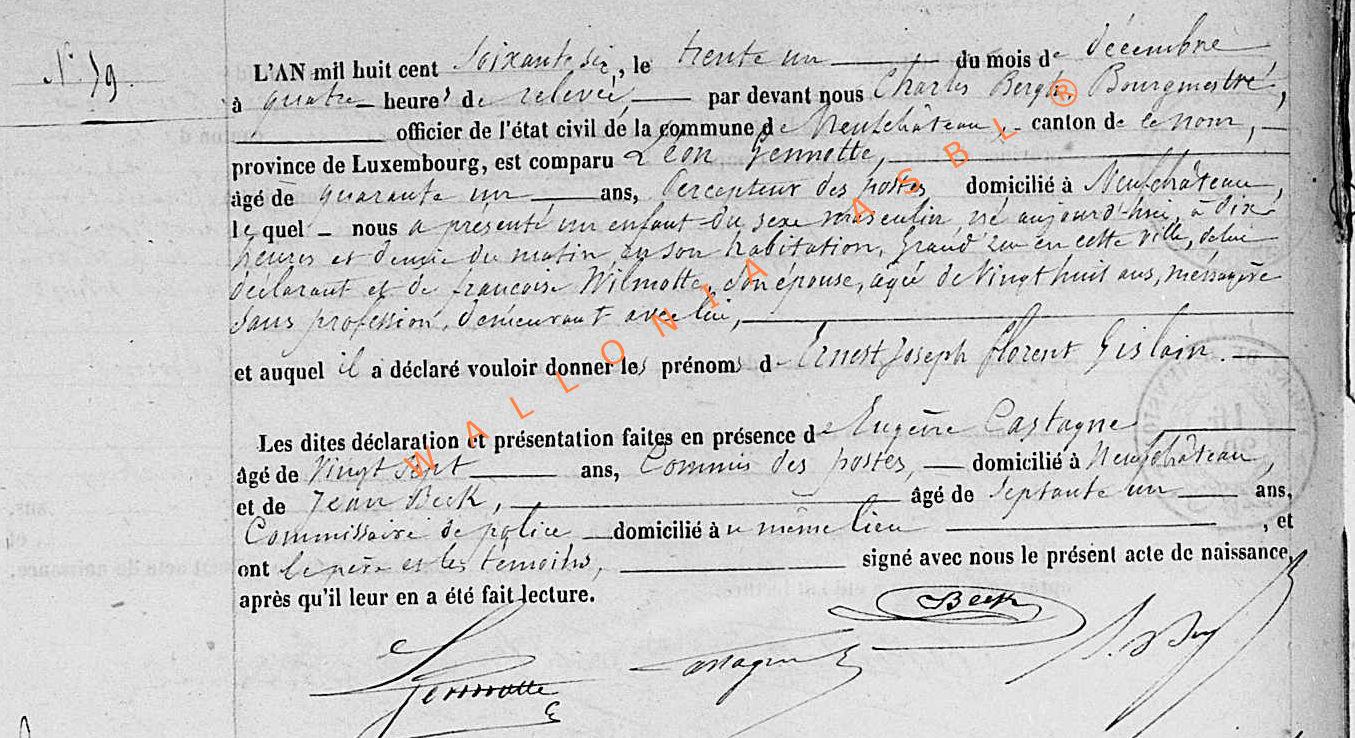 N° 59.
L'AN mil huit cent soixante six, le trente un du mois de décembre
à quatre heures de relevée, par devant nous Charles Bergh, Bourgmestre,
officier de l'état civil de la commune de Neufchâteau, canton de ce nom,
province de Luxembourg, est comparu Léon Gennotte,
âgé de quarante un ans, Percepteur des postes domicilié à Neufchâteau,
lequel nous a présenté un enfant du sexe masculin, né aujourd'hui, à dix
heures et demie du matin, en son habitation, Grand'rue en cette ville, de lui
déclarant et de françoise Wilmotte, son épouse, agée de vingt huit ans, ménagère
sans profession, demeurant avec lui,
et auquel il a déclaré vouloir donner les prénoms de Ernest Joseph florent Gislain.
Les dites déclaration et présentation faites en présence de Eugène Castagne,
âgé de vingt sept ans, Commis des postes, domicilié à Neufchâteau,
et de Jean Beck, âgé de septante un ans,
Commissaire de police domicilié à u même lieu , et
ont le père et les témoins, signé avec nous le présent acte de naissance,
après qu'il leur en a été fait lecture.
Beck
Gennotte
Castagne
WALLONIA ASBL ®